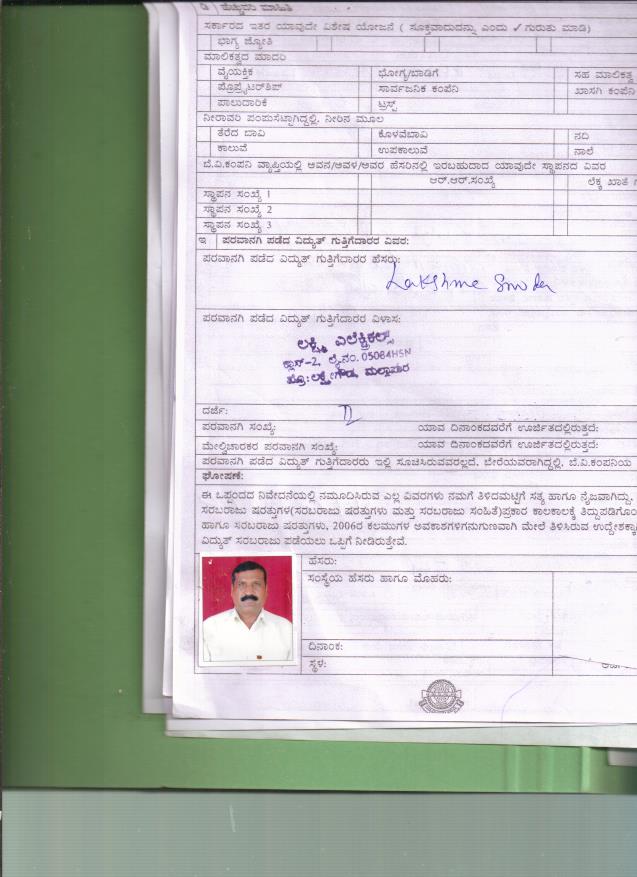 ಡಿ ಹೆಚ್ಚುವರಿ ಮಾಹಿತಿ
ಸರ್ಕಾರದ ಇತರ ಯಾವುದೇ ವಿಶೇಷ ಯೋಜನೆ ( ಸೂಕ್ತವಾದುದನ್ನು ಎಂದು ✓ ಗುರುತು ಮಾಡಿ)
ಭಾಗ್ಯ ಜ್ಯೋತಿ
ಮಾಲಿಕತ್ವದ ಮಾದರಿ
ವೈಯಕ್ತಿಕ ಭೋಗ್ಯ/ಬಾಡಿಗೆ ಸಹ ಮಾಲಿಕತ್ವ
ಪ್ರೊಪ್ರೈಟರ್‌ಶಿಪ್ ಸಾರ್ವಜನಿಕ ಕಂಪೆನಿ ಖಾಸಗಿ ಕಂಪೆನಿ
ಪಾಲುದಾರಿಕೆ ಟ್ರಸ್ಟ್
ನೀರಾವರಿ ಪಂಪುಸೆಟ್ಟಾಗಿದ್ದಲ್ಲಿ, ನೀರಿನ ಮೂಲ
ತೆರೆದ ಬಾವಿ ಕೊಳವೆಬಾವಿ ನದಿ
ಕಾಲುವೆ ಉಪಕಾಲುವೆ ನಾಲೆ
ಬೆ.ವಿ.ಕಂಪನಿ ವ್ಯಾಪ್ತಿಯಲ್ಲಿ ಅವನ/ಅವಳ/ಅವರ ಹೆಸರಿನಲ್ಲಿ ಇರಬಹುದಾದ ಯಾವುದೇ ಸ್ಥಾಪನದ ವಿವರ
ಆರ್.ಆರ್.ಸಂಖ್ಯೆ ಲೆಕ್ಕ ಖಾತೆ
ಸ್ಥಾಪನ ಸಂಖ್ಯೆ 1
ಸ್ಥಾಪನ ಸಂಖ್ಯೆ 2
ಸ್ಥಾಪನ ಸಂಖ್ಯೆ 3
ಇ ಪರವಾನಗಿ ಪಡೆದ ವಿದ್ಯುತ್ ಗುತ್ತಿಗೆದಾರರ ವಿವರ:
ಪರವಾನಗಿ ಪಡೆದ ವಿದ್ಯುತ್ ಗುತ್ತಿಗೆದಾರರ ಹೆಸರು:
ಪರವಾನಗಿ ಪಡೆದ ವಿದ್ಯುತ್ ಗುತ್ತಿಗೆದಾರರ ವಿಳಾಸ:
ಲಕ್ಷ್ಮಿ ಎಲೆಕ್ಟ್ರಿಕಲ್ಸ್
ಕ್ಲಾಸ್-2, ಲೈ.ನಂ. 05084HSN
ಪ್ರೊ: ಲಕ್ಷ್ಮೇಗೌಡ, ಮಲ್ಲಾಪುರ
ದರ್ಜೆ: II
ಪರವಾನಗಿ ಸಂಖ್ಯೆ: ಯಾವ ದಿನಾಂಕದವರೆಗೆ ಊರ್ಜಿತದಲ್ಲಿರುತ್ತದೆ:
ಮೇಲ್ವಿಚಾರಕರ ಪರವಾನಗಿ ಸಂಖ್ಯೆ: ಯಾವ ದಿನಾಂಕದವರೆಗೆ ಊರ್ಜಿತದಲ್ಲಿರುತ್ತದೆ:
ಪರವಾನಗಿ ಪಡೆದ ವಿದ್ಯುತ್ ಗುತ್ತಿಗೆದಾರರು ಇಲ್ಲಿ ಸೂಚಿಸಿರುವವರಲ್ಲದೆ, ಬೇರೆಯವರಾಗಿದ್ದಲ್ಲಿ, ಬೆ.ವಿ.ಕಂಪನಿಯ
ಘೋಷಣೆ:
ಈ ಒಪ್ಪಂದದ ನಿವೇದನೆಯಲ್ಲಿ ನಮೂದಿಸಿರುವ ಎಲ್ಲ ವಿವರಗಳು ನಮಗೆ ತಿಳಿದಮಟ್ಟಿಗೆ ಸತ್ಯ ಹಾಗೂ ನೈಜವಾಗಿದ್ದು,
ಸರಬರಾಜು ಷರತ್ತುಗಳ(ಸರಬರಾಜು ಷರತ್ತುಗಳು ಮತ್ತು ಸರಬರಾಜು ಸಂಹಿತೆ)ಪ್ರಕಾರ ಕಾಲಕಾಲಕ್ಕೆ
ಹಾಗೂ ಸರಬರಾಜು ಷರತ್ತುಗಳು, 2006ರ ಕಲಮುಗಳ ಅವಕಾಶಗಳಿಗನುಗುಣವಾಗಿ ಮೇಲೆ ತಿಳಿಸಿರುವ
ವಿದ್ಯುತ್ ಸರಬರಾಜು ಪಡೆಯಲು ಒಪ್ಪಿಗೆ ನೀಡಿರುತ್ತೇವೆ.
ಹೆಸರು:
ಸಂಸ್ಥೆಯ ಹೆಸರು ಹಾಗೂ ಮೊಹರು:
ದಿನಾಂಕ:
ಸ್ಥಳ: